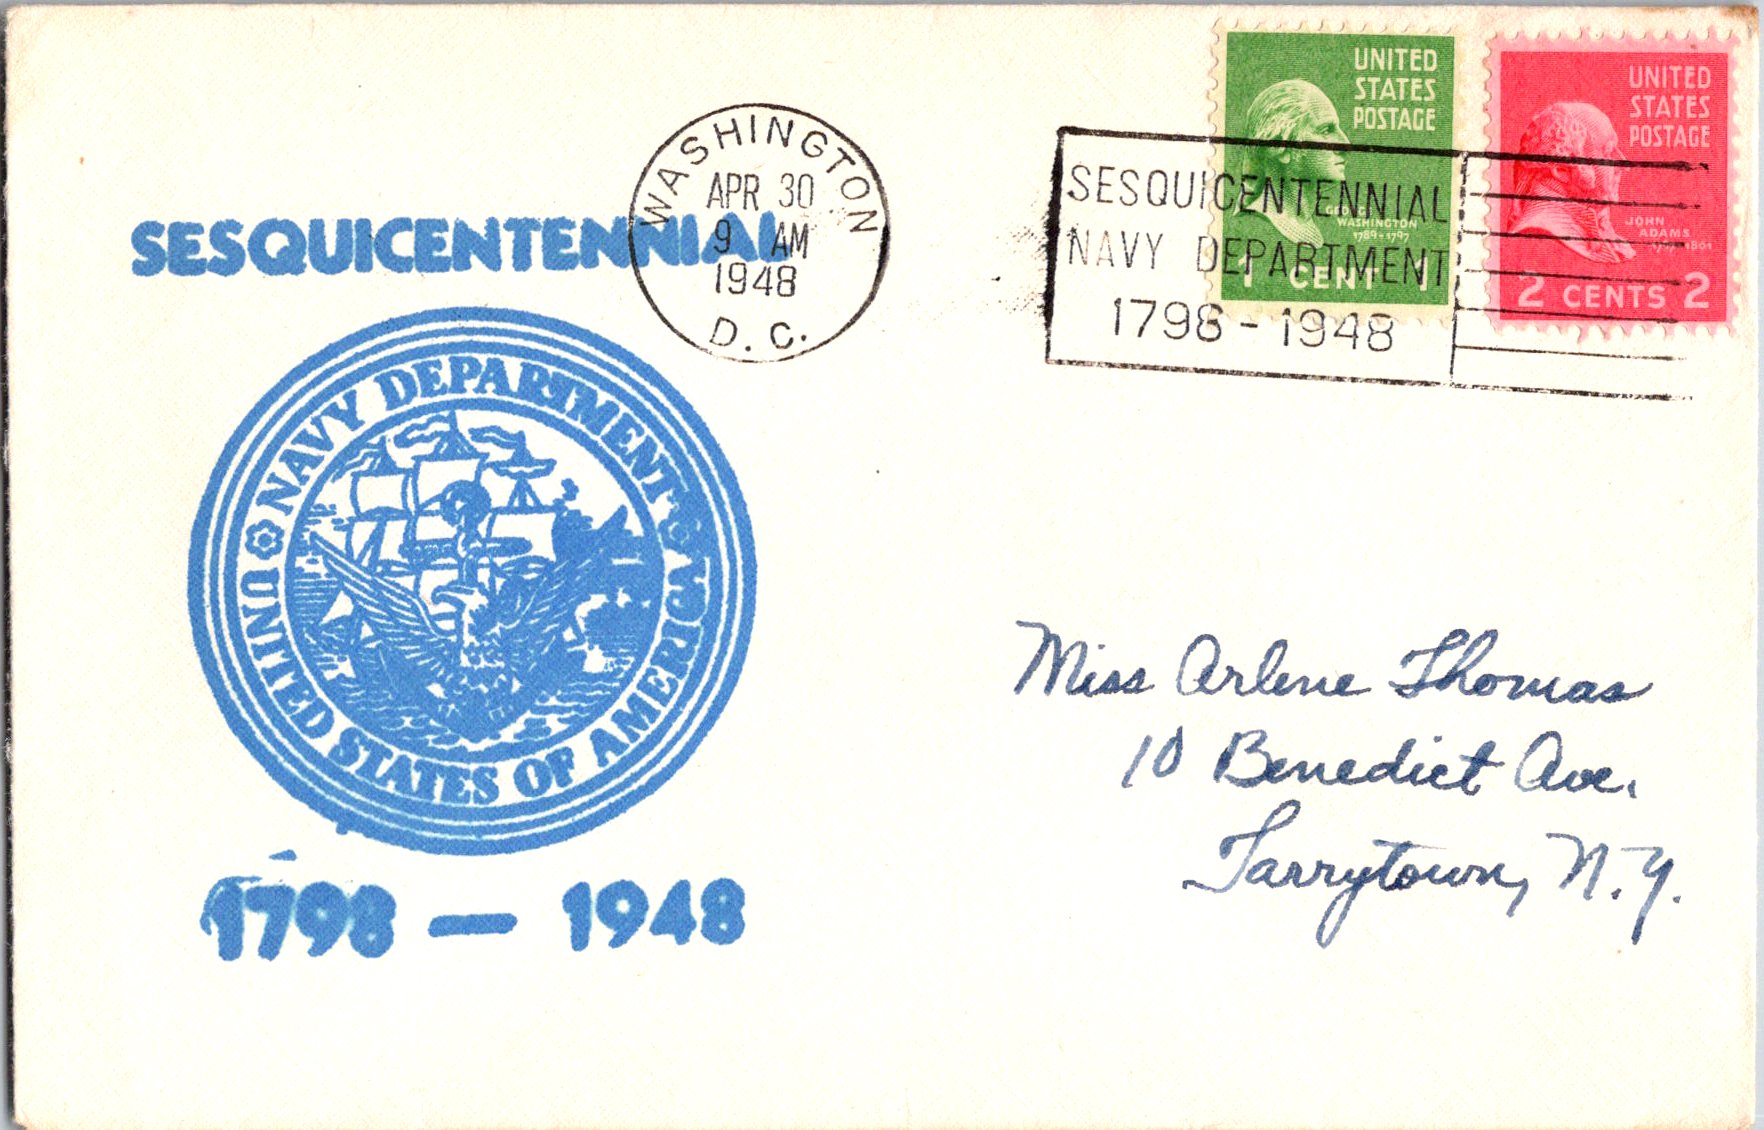 SESQUICENTENNIAL
NAVY DEPARTMENT
UNITED STATES OF AMERICA
1798 — 1948
WASHINGTON
APR 30
9 AM
1948
D. C.
SESQUICENTENNIAL
NAVY DEPARTMENT
1798 - 1948
UNITED
STATES
POSTAGE
GEORGE
WASHINGTON
1789-1797
1 CENT 1
UNITED
STATES
POSTAGE
JOHN
ADAMS
1797-1801
2 CENTS 2
Miss Arlene Thomas
10 Benedict Ave.
Tarrytown, N.Y.